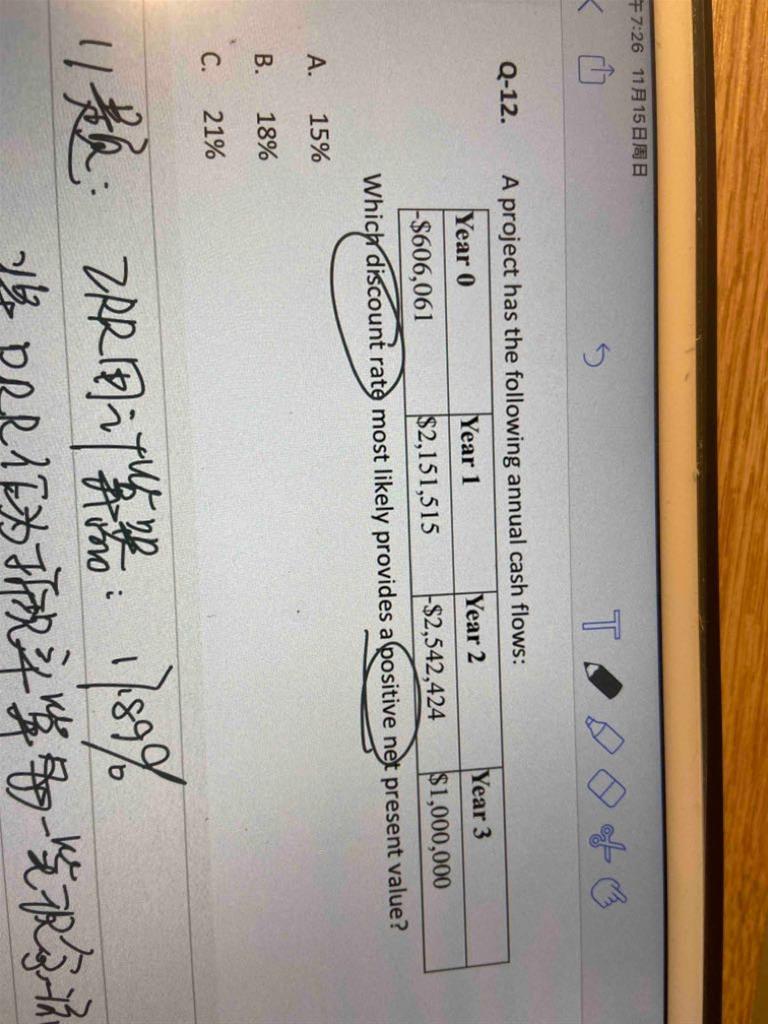 午7:26 11月15日周日
Q-12. A project has the following annual cash flows:
Year 0 Year 1 Year 2 Year 3
-$606,061 $2,151,515 -$2,542,424 $1,000,000
Which discount rate most likely provides a positive net present value?
A. 15%
B. 18%
C. 21%
题: IRR 用计算器: 17.89%
将 IRR作为折现 计算 每一笔现金流